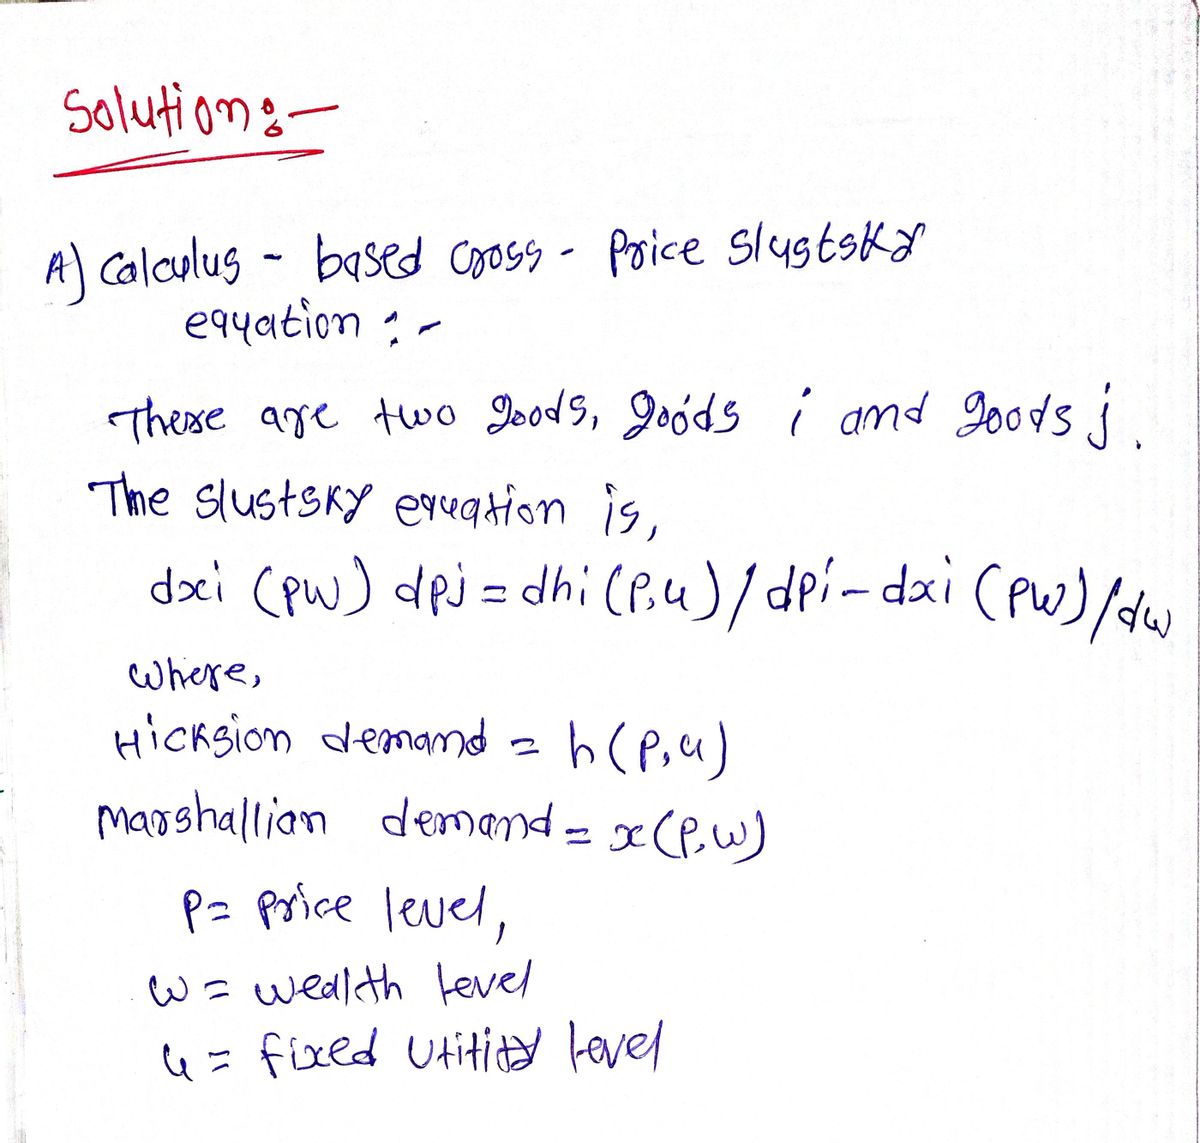 Solution :-
A) Calculus - based cross - Price Slustsky
equation :-
There are two goods, goods i and goods j.
The slustsky equation is,
dxi (pw) dpj = dhi (P,u) / dpi - dxi (pw) / dw
where,
Hicksion demand = h (P,u)
marshallian demand = x (P,w)
P = Price level,
w = wealth level
u = fixed Utitity level